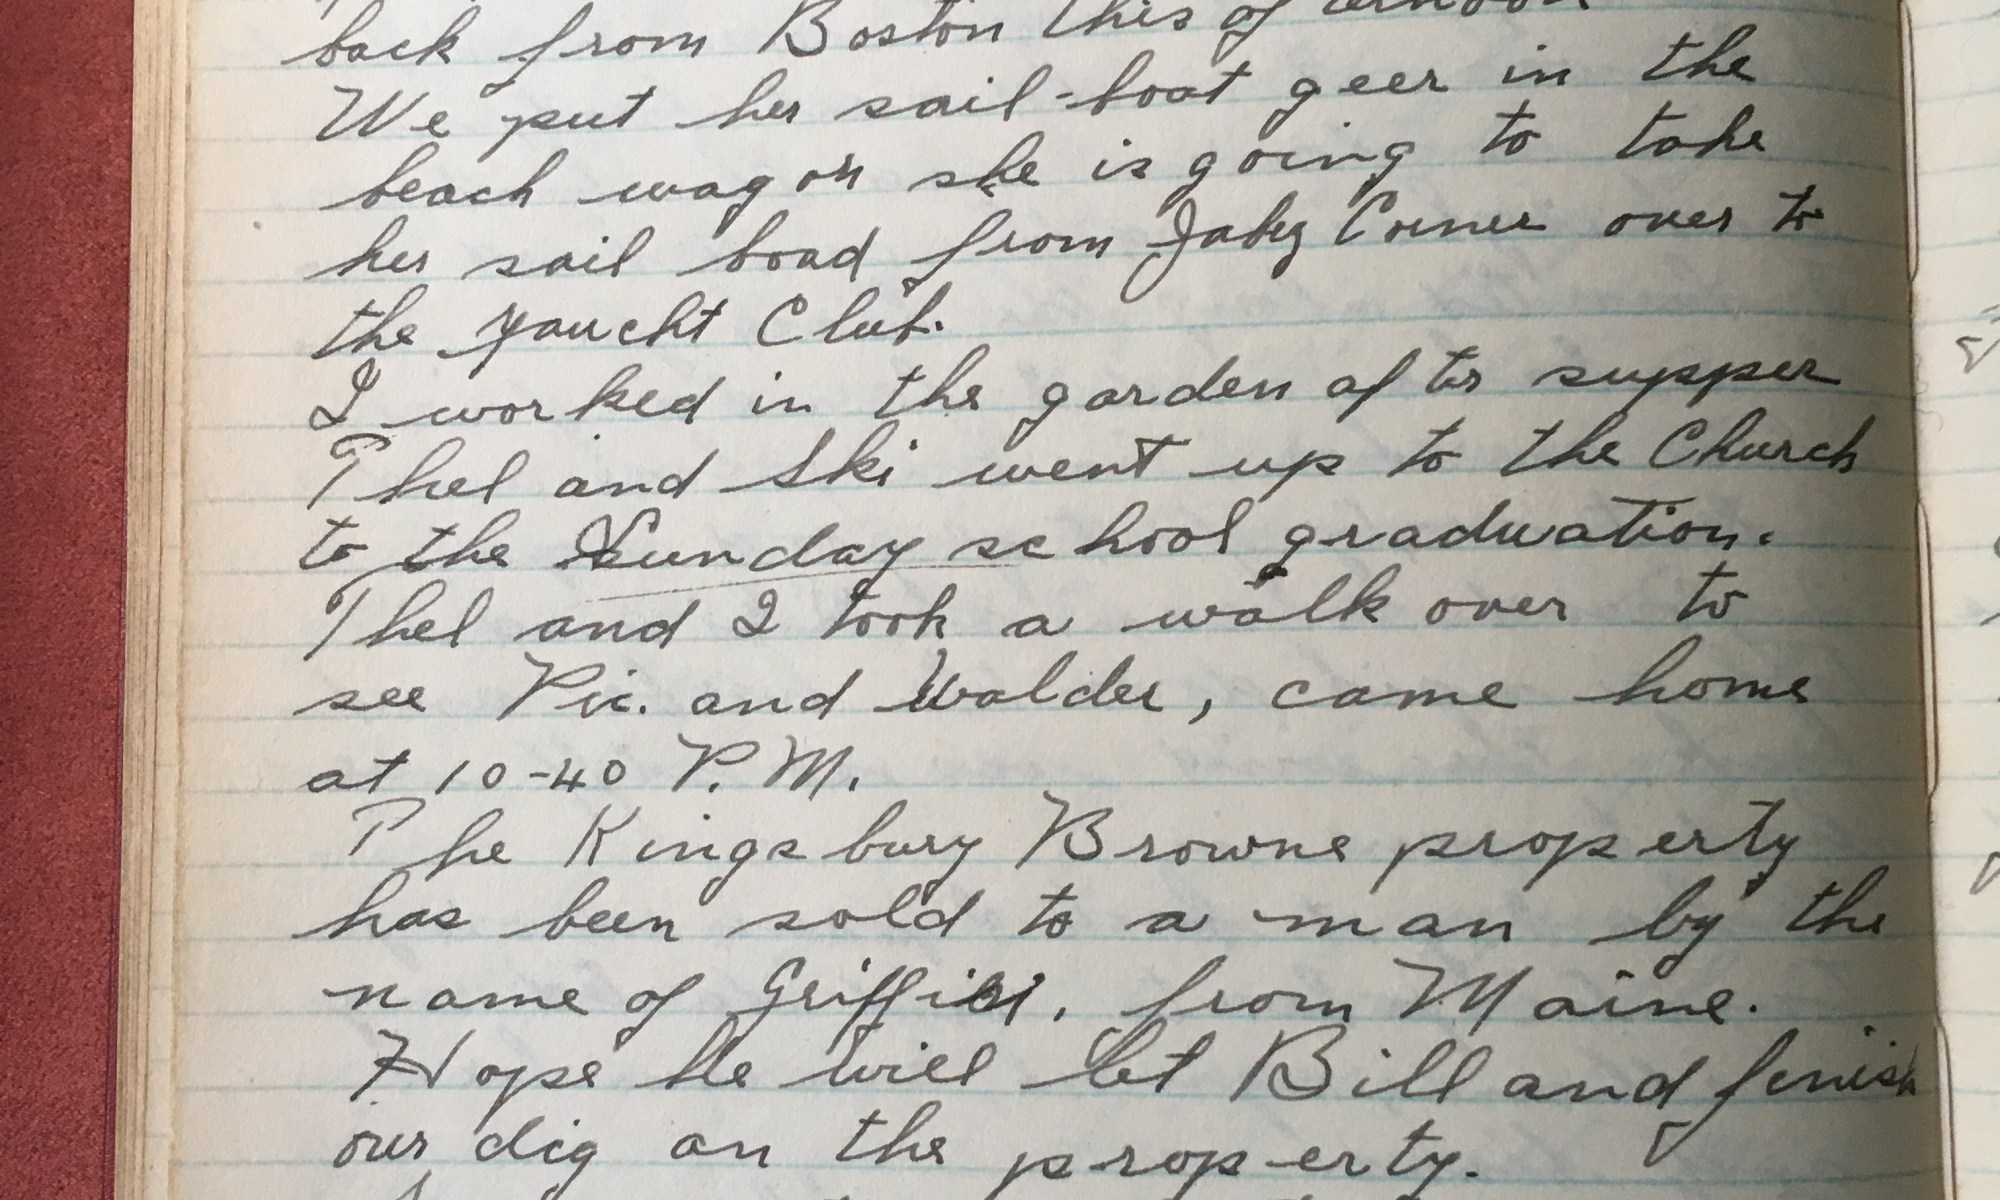 back from Boston this afternoon
We put her sail-boat geer in the
beach wagon she is going to take
her sail boad from Jabez Corner over to
the Yaucht Club.
I worked in the garden after supper
Thel and Ski went up to the Church
to the Sunday school graduation.
Thel and I took a walk over to
see Vic. and Walder, came home
at 10-40 P.M.
The Kingsbury Browne property
has been sold to a man by the
name of from Maine.
Hope He will let Bill and finish
our dig on the property.